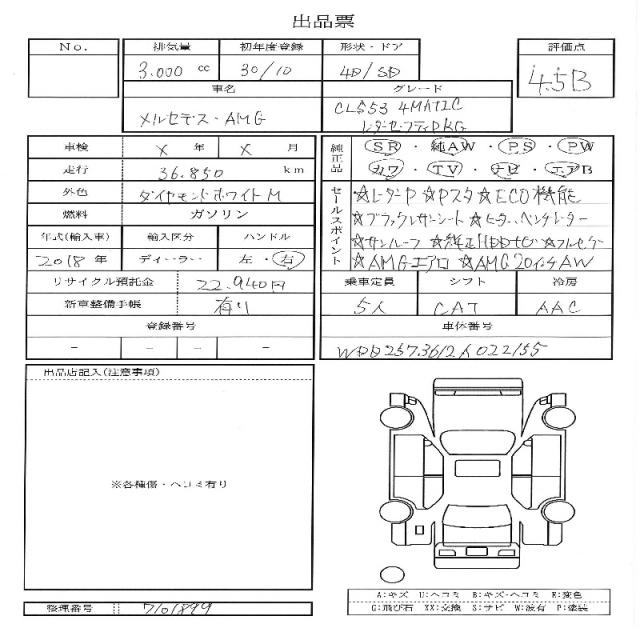 出品票
No.
排気量 初年度登録 形状・ドア 評価点
3.000 cc 30/10 4D/SD 4.5B
車名 グレード
メルセデス・AMG
CLS53 4MATIC
レダーセーフティPKG
車検 X 年 X 月
走行 36.850 km
外色 ダイヤモンドホワイトM
燃料 ガソリン
年式(輸入車) 輸入区分 ハンドル
2018年 ディーラー 左・右
リサイクル預託金 22.940円
新車整備手帳 有り
登録番号
－ － － －
純正品
SR・純AW・PS・PW
カワ・TV・ナビ・エアB
セールスポイント
☆レーダーP ☆Pスタ ☆ECO機能
☆ブラックレザーシート ☆ヒーター、ベンチレーター
☆サンルーフ ☆純正HDDナビ ☆フルセグ
☆AMGエアロ ☆AMG20インチAW
乗車定員 シフト 冷房
5人 CAT AAC
車体番号
出品店記入(注意事項)
※各種傷・ヘコミ有り
A:キズ U:ヘコミ B:キズ・ヘコミ E:変色
G:飛び石 XX:交換 S:サビ W:波有 P:塗装
整理番号 7101899